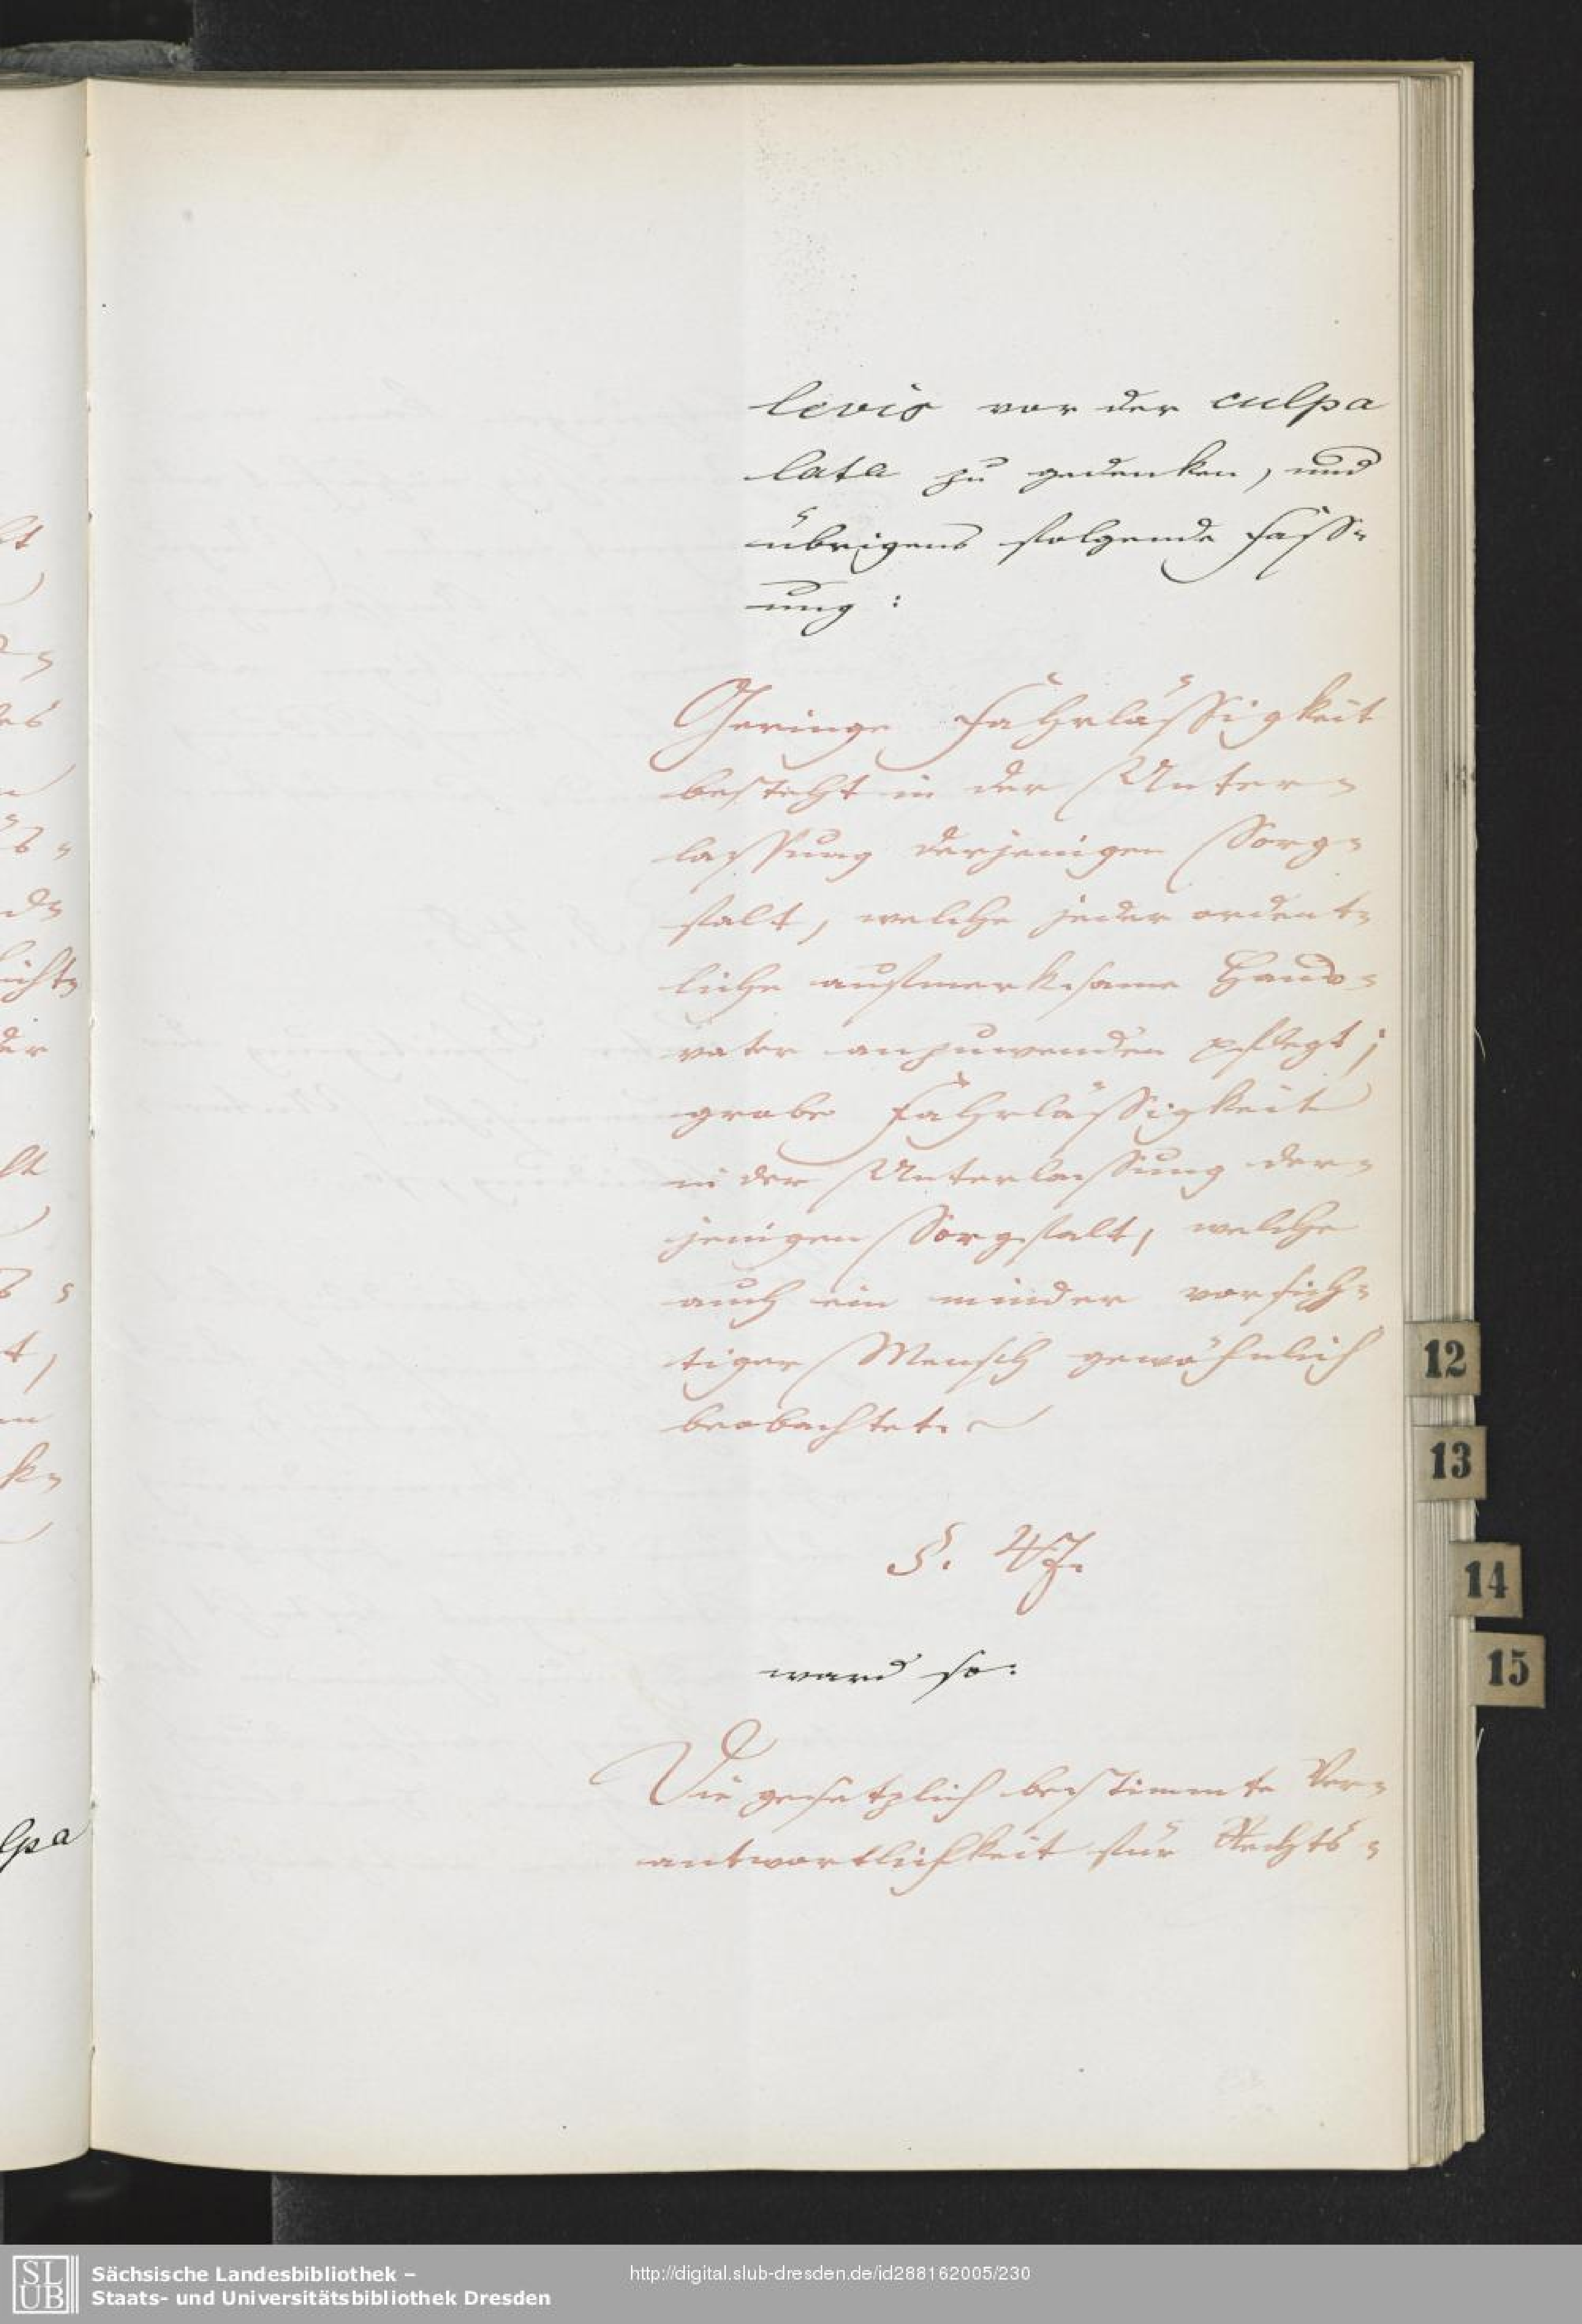 levis vor der culpa
lata zu gedenken, und
übrigens folgende Fass-
ung:
Geringe Fahrlässigkeit
besteht in der Unter-
lassung derjenigen Sorg-
falt, welche jeder ordent-
liche aufmerksame Haus-
vater anzuwenden pflegt;
grobe Fahrlässigkeit
in der Unterlassung der-
jenigen Sorgfalt, welche
auch ein minder vorsich-
tiger Mensch gewöhnlich
beobachtet.
§. 47.
ward so:
Die gesetzlich bestimmte Ver-
antwortlichkeit für Rechts-
lpa
12
13
14
15
SLUB
Sächsische Landesbibliothek –
Staats- und Universitätsbibliothek Dresden
http://digital.slub-dresden.de/id288162005/230